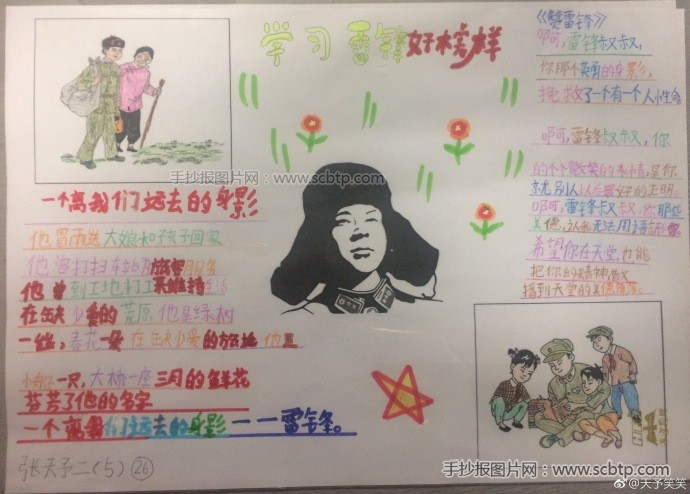 学习雷锋好榜样
手抄报图片网：www.scbtp.com
一个离我们远去的身影
他冒雨送大娘和孩子回家
他曾打扫车站为旅客服务
他曾到工地打工来维持生活
在缺少食的荒原 他是绿树
一丝，春花一朵 在缺少爱的
小船一只，大桥一座 三月的鲜花
芬芳了他的名字
一个离我们远去的身影——雷锋。
张天予二（5）26
《赞雷锋》
啊，雷锋叔叔，
你那个英勇的身影，
拯救了一个有一个人小生命
啊，雷锋叔叔，你
的个个微笑的表情，是你
就别人以后最好的正明。
啊，雷锋叔叔，你那些
美德，让我无法用语
希望你在天堂，也能
把你的精神
播到天堂的
手抄报图片网：www.scbtp.com
@天予笑笑